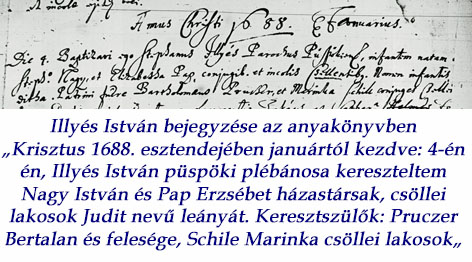 Annus Christi 1688. Januarius.
Die 4. Baptizavi ego Stephanus Illyés Parochus Püspökien, infantem natam
Nagy, et Pap, conjugib. et incolis Nomen infantis
Patrini Bartholomaeus et Marinka
Illyés István bejegyzése az anyakönyvben
„Krisztus 1688. esztendejében januártól kezdve: 4-én
én, Illyés István püspöki plébánosa kereszteltem
Nagy István és Pap Erzsébet házastársak, csöllei
lakosok Judit nevű leányát. Keresztszülők: Pruczer
Bertalan és felesége, Schile Marinka csöllei lakosok„